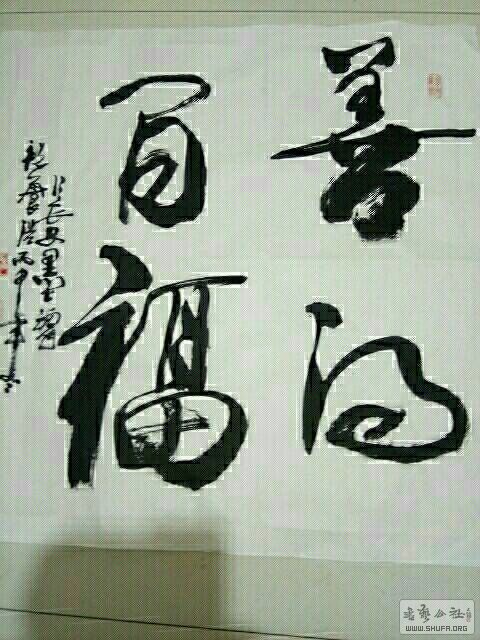 善得
百福
长安墨
丙申年冬
书艺公社
WWW.SHUFA.ORG